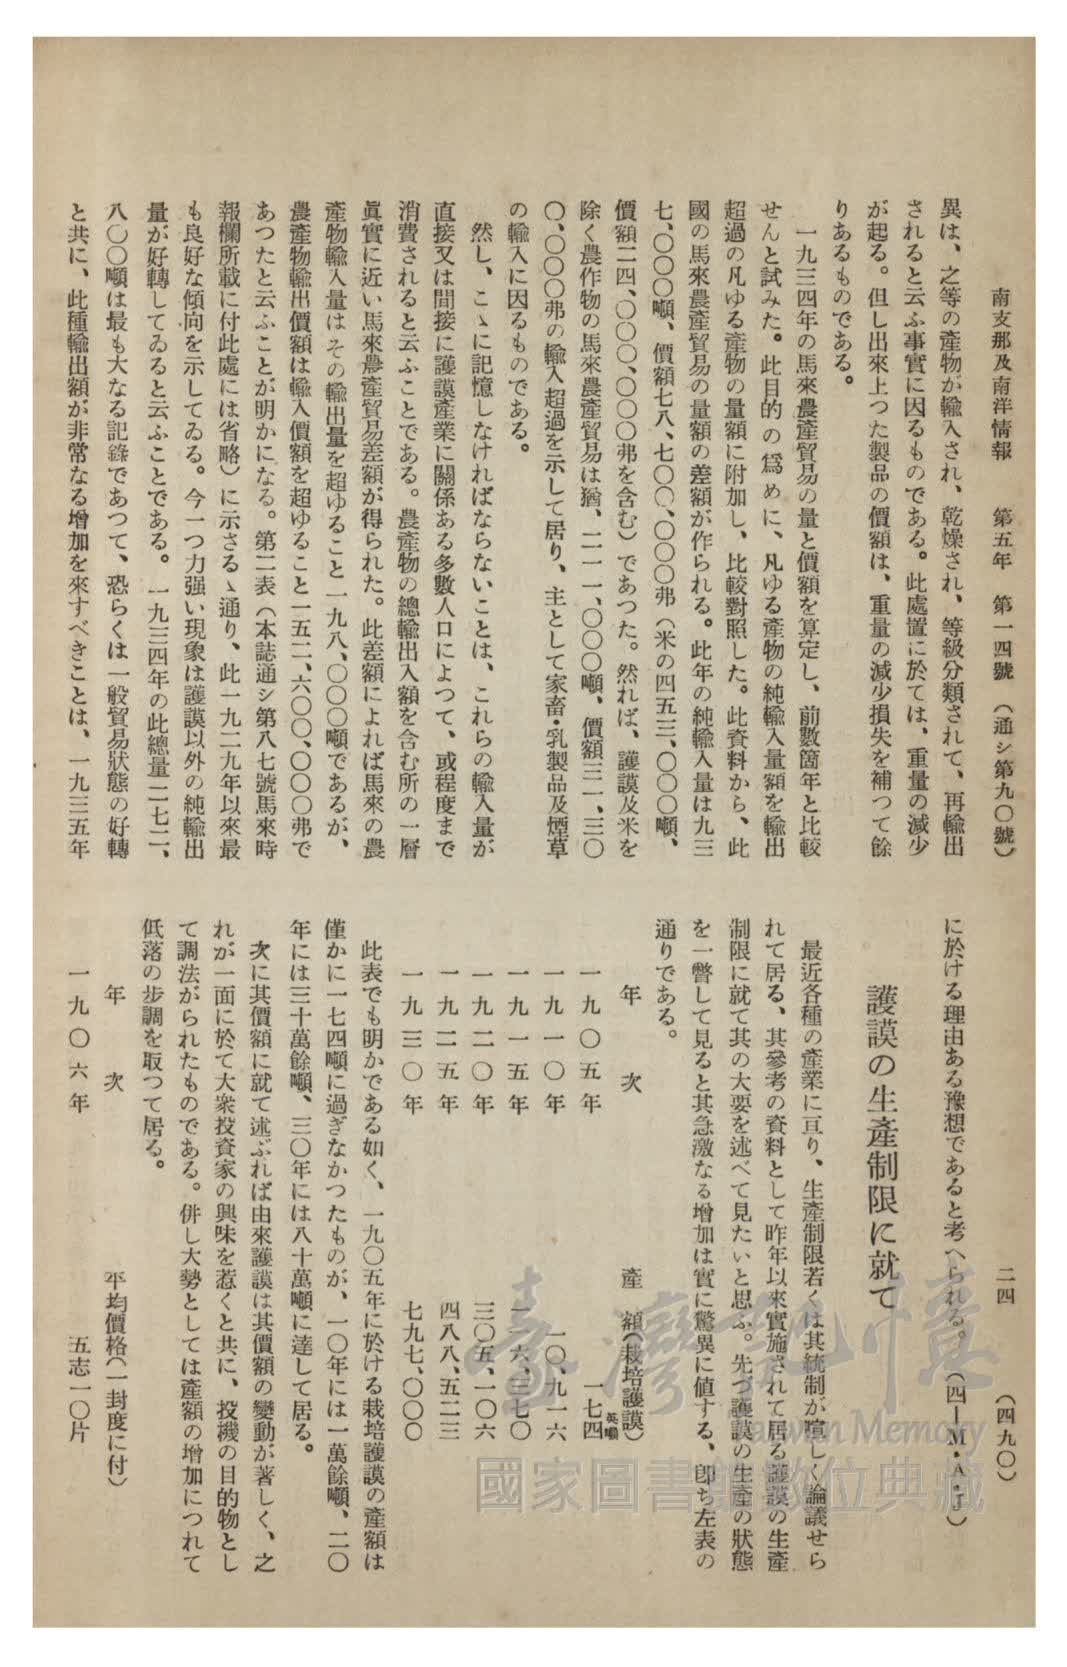 南支那及南洋情報　第五年　第一四號　（通シ第九〇號）　二四　（四九〇）
異は、之等の產物が輸入され、乾燥され、等級分類されて、再輸出
されると云ふ事實に因るものである。此處置に於ては、重量の減少
が起る。但し出來上つた製品の價額は、重量の減少損失を補つて餘
りあるものである。
一九三四年の馬來農產貿易の量と價額を算定し、前數箇年と比較
せんと試みた。此目的の爲めに、凡ゆる產物の純輸入量額を輸出
超過の凡ゆる產物の量額に附加し、比較對照した。此資料から、此
國の馬來農產貿易の量額の差額が作られる。此年の純輸入量は九三
七、〇〇〇噸、價額七八、七〇〇、〇〇〇弗（米の四五三、〇〇〇噸、
價額二四、〇〇〇、〇〇〇弗を含む）であつた。然れば、護謨及米を
除く農作物の馬來農產貿易は猶、二一一、〇〇〇噸、價額三一、三〇
〇、〇〇〇弗の輸入超過を示して居り、主として家畜・乳製品及煙草
の輸入に因るものである。
然し、こゝに記憶しなければならないことは、これらの輸入量が
直接又は間接に護謨產業に關係ある多數人口によつて、或程度まで
消費されると云ふことである。農產物の總輸出入額を含む所の一層
眞實に近い馬來農產貿易差額が得られた。此差額によれば馬來の農
產物輸入量はその輸出量を超ゆること一九八、〇〇〇噸であるが、
農產物輸出價額は輸入價額を超ゆること一五二、六〇〇、〇〇〇弗で
あつたと云ふことが明かになる。第二表（本誌通シ第八七號馬來時
報欄所載に付此處には省略）に示さるゝ通り、此一九二九年以來最
も良好な傾向を示してゐる。今一つ力强い現象は護謨以外の純輸出
量が好轉してゐると云ふことである。一九三四年の此總量二七二、
八〇〇噸は最も大なる記錄であつて、恐らくは一般貿易狀態の好轉
と共に、此種輸出額が非常なる增加を來すべきことは、一九三五年
に於ける理由ある豫想であると考へられる。（四―M・A・J）
護謨の生產制限に就て
最近各種の產業に亘り、生產制限若くは其統制が喧しく論議せら
れて居る、其參考の資料として昨年以來實施されて居る護謨の生產
制限に就て其の大要を述べて見たいと思ふ。先づ護謨の生產の狀態
を一瞥して見ると其急激なる增加は實に驚異に値する、卽ち左表の
通りである。
年　次　產　額（栽培護謨）
一九〇五年　一七四英噸
一九一〇年　一〇、九一六
一九一五年　一一六、三七〇
一九二〇年　三〇五、一〇六
一九二五年　四八八、五二三
一九三〇年　七九七、〇〇〇
此表でも明かである如く、一九〇五年に於ける栽培護謨の產額は
僅かに一七四噸に過ぎなかつたものが、一〇年には一萬餘噸、二〇
年には三十萬餘噸、三〇年には八十萬噸に達して居る。
次に其價額に就て述ぶれば由來護謨は其價額の變動が著しく、之
れが一面に於て大衆投資家の興味を惹くと共に、投機の目的物とし
て調法がられたものである。併し大勢としては產額の增加につれて
低落の步調を取つて居る。
年　次　平均價格（一封度に付）
一九〇六年　五志一〇片
臺灣記憶
Taiwan Memory
國家圖書館數位典藏